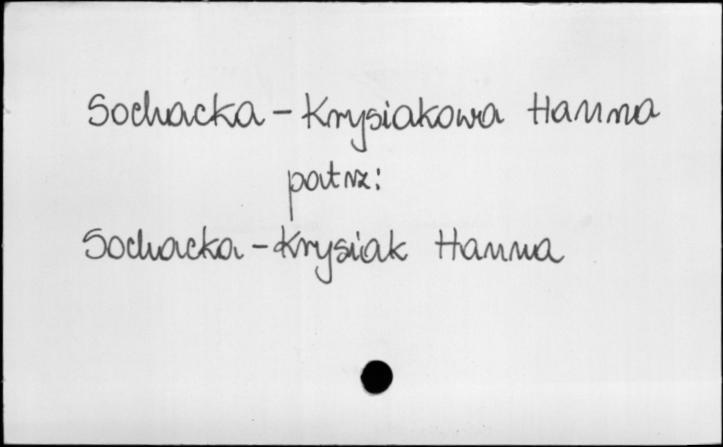 Sochacka - Krysiakowa Hanna
patrz:
Sochacka - Krysiak Hanna